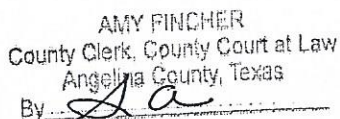 AMY FINCHER
County Clerk, County Court at Law
Angelina County, Texas
By